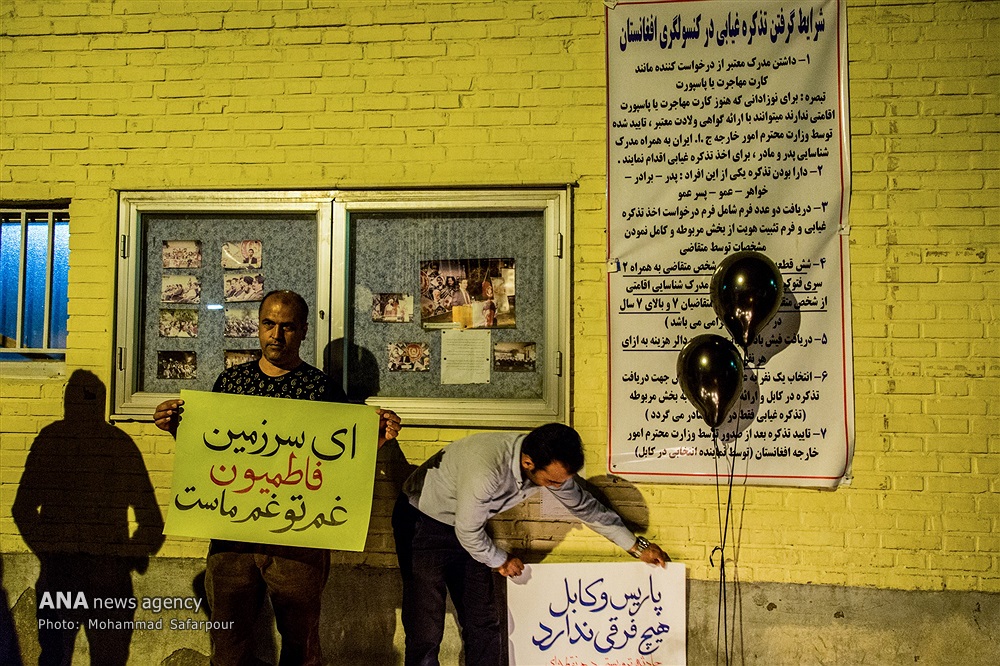 شرایط گرفتن تذکره غیابی در کنسولگری افغانستان
۱- داشتن مدرک معتبر از درخواست کننده مانند
کارت مهاجرت یا پاسپورت
تبصره : برای نوزادانی که هنوز کارت مهاجرت یا پاسپورت
اقامتی ندارند میتوانند با ارائه گواهی ولادت معتبر ، تایید شده
توسط وزارت محترم امور خارجه ج .ا. ایران به همراه مدرک
شناسایی پدر و مادر ، برای اخذ تذکره غیابی اقدام نمایند .
۲- دارا بودن تذکره یکی از این افراد : پدر - برادر -
خواهر - عمو - پسر عمو
۳- دریافت دو عدد فرم شامل فرم درخواست اخذ تذکره
غیابی و فرم تثبیت هویت از بخش مربوطه و کامل نمودن
مشخصات توسط متقاضی
۴- شش قطعه شخص متقاضی به همراه ۱۲
سری مدرک شناسایی اقامتی
از شخص متقاضیان ۷ و بالای ۷ سال
می باشد )
۵- دریافت دالر هزینه به ازای
۶- انتخاب یک نفر به جهت دریافت
تذکره در کابل و ارائه به بخش مربوطه
(تذکره غیابی فقط در صادر می گردد )
۷- تایید تذکره بعد از صدور توسط وزارت محترم امور
خارجه افغانستان (توسط نماینده انتخابی در کابل)
ای سرزمین
فاطمیون
غم تو غم ماست
پاریس و کابل
هیچ فرقی ندارد
ANA news agency
Photo: Mohammad Safarpour